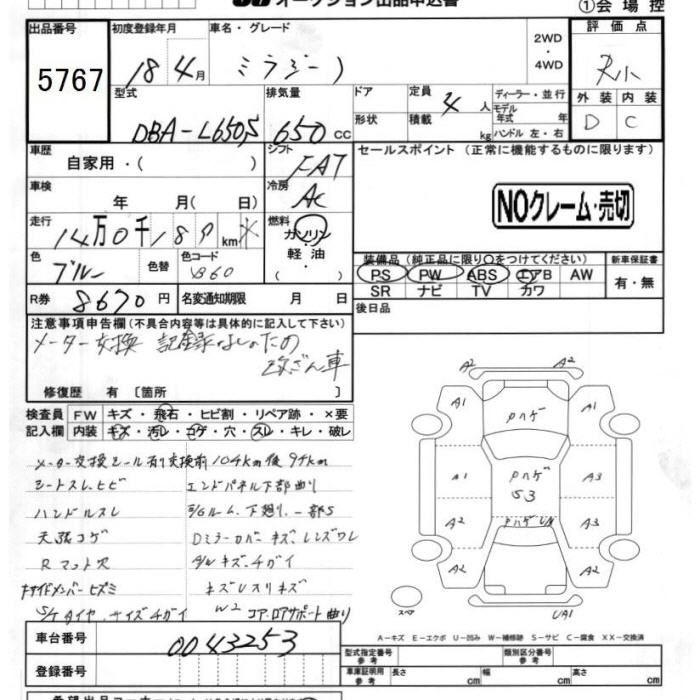 オークション出品申込書
①会場控
出品番号
5767
初度登録年月
車名・グレード
2WD
・
4WD
評価点
18 4月
ミラジーノ
外装 内装
D C
型式
排気量
ドア
定員
4人
ディーラー・並行
モデル
年式 年
DBA-L650S
650 cc
形状
積載
kg
ハンドル 左・右
車歴
自家用・( )
シフト
FAT
セールスポイント (正常に機能するものに限ります)
車検
年 月( 日)
冷房
AC
NOクレーム・売切
走行
14万0千189km
燃料
ガソリン
・
軽油
・
色
ブルー
色替
色コード
B60
装備品(純正品に限り○をつけてください)
新車保証書
PS PW ABS エアB AW
有・無
SR ナビ TV カワ
R券
8670円
名変通知期限 月 日
後日品
注意事項申告欄(不具合内容等は具体的に記入して下さい)
メーター交換 記録なしのため
改ざん車
修復歴 有 [箇所 ]
検査員
記入欄
FW キズ・飛石・ヒビ割・リペア跡・×要
内装 キズ・汚レ・コゲ・穴・スレ・キレ・破レ
メーター交換シール有り交換前104km後97km
シートスレ、ヒビ
エンドパネル下部曲り
ハンドルスレ
E/Gルーム、下廻り、一部S
天張コゲ
Dミラーカバーキズ、レンズワレ
Rマット穴
A/Wキズ、チガイ
サイドメンバーヒズミ
S/Tタイヤ、サイズチガイ
W2 コア、ロアサポート曲り
A2 A2
A1 Pハゲ A1
A1 Pハゲ A3
S3
A2 A3
A2 A2
スペア
UA1
A-キズ E-エクボ U-凹み W-補修跡 S-サビ C-腐食 XX-交換済
車台番号
0043253
型式指定番号
参考
類別区分番号
参考
登録番号
車庫証明用
参考
長さ cm
幅 cm
高さ cm